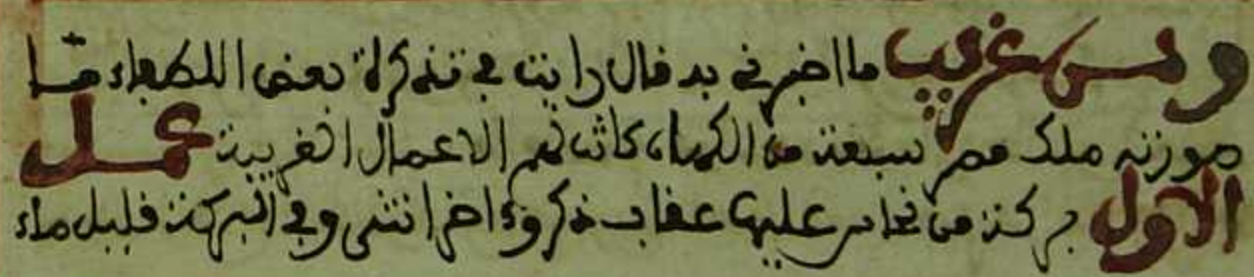 ومن غريب ما اخبرني به قال رايت في تذكرة بعض اللطفاء ما
صورته ملك مصر سبعة من الكهان كانت لهم الاعمال الغريبة عمل
الاول بركة من نحاس عليها عقاب ذكر وءاخر انثى وفي البركة قليل ماء